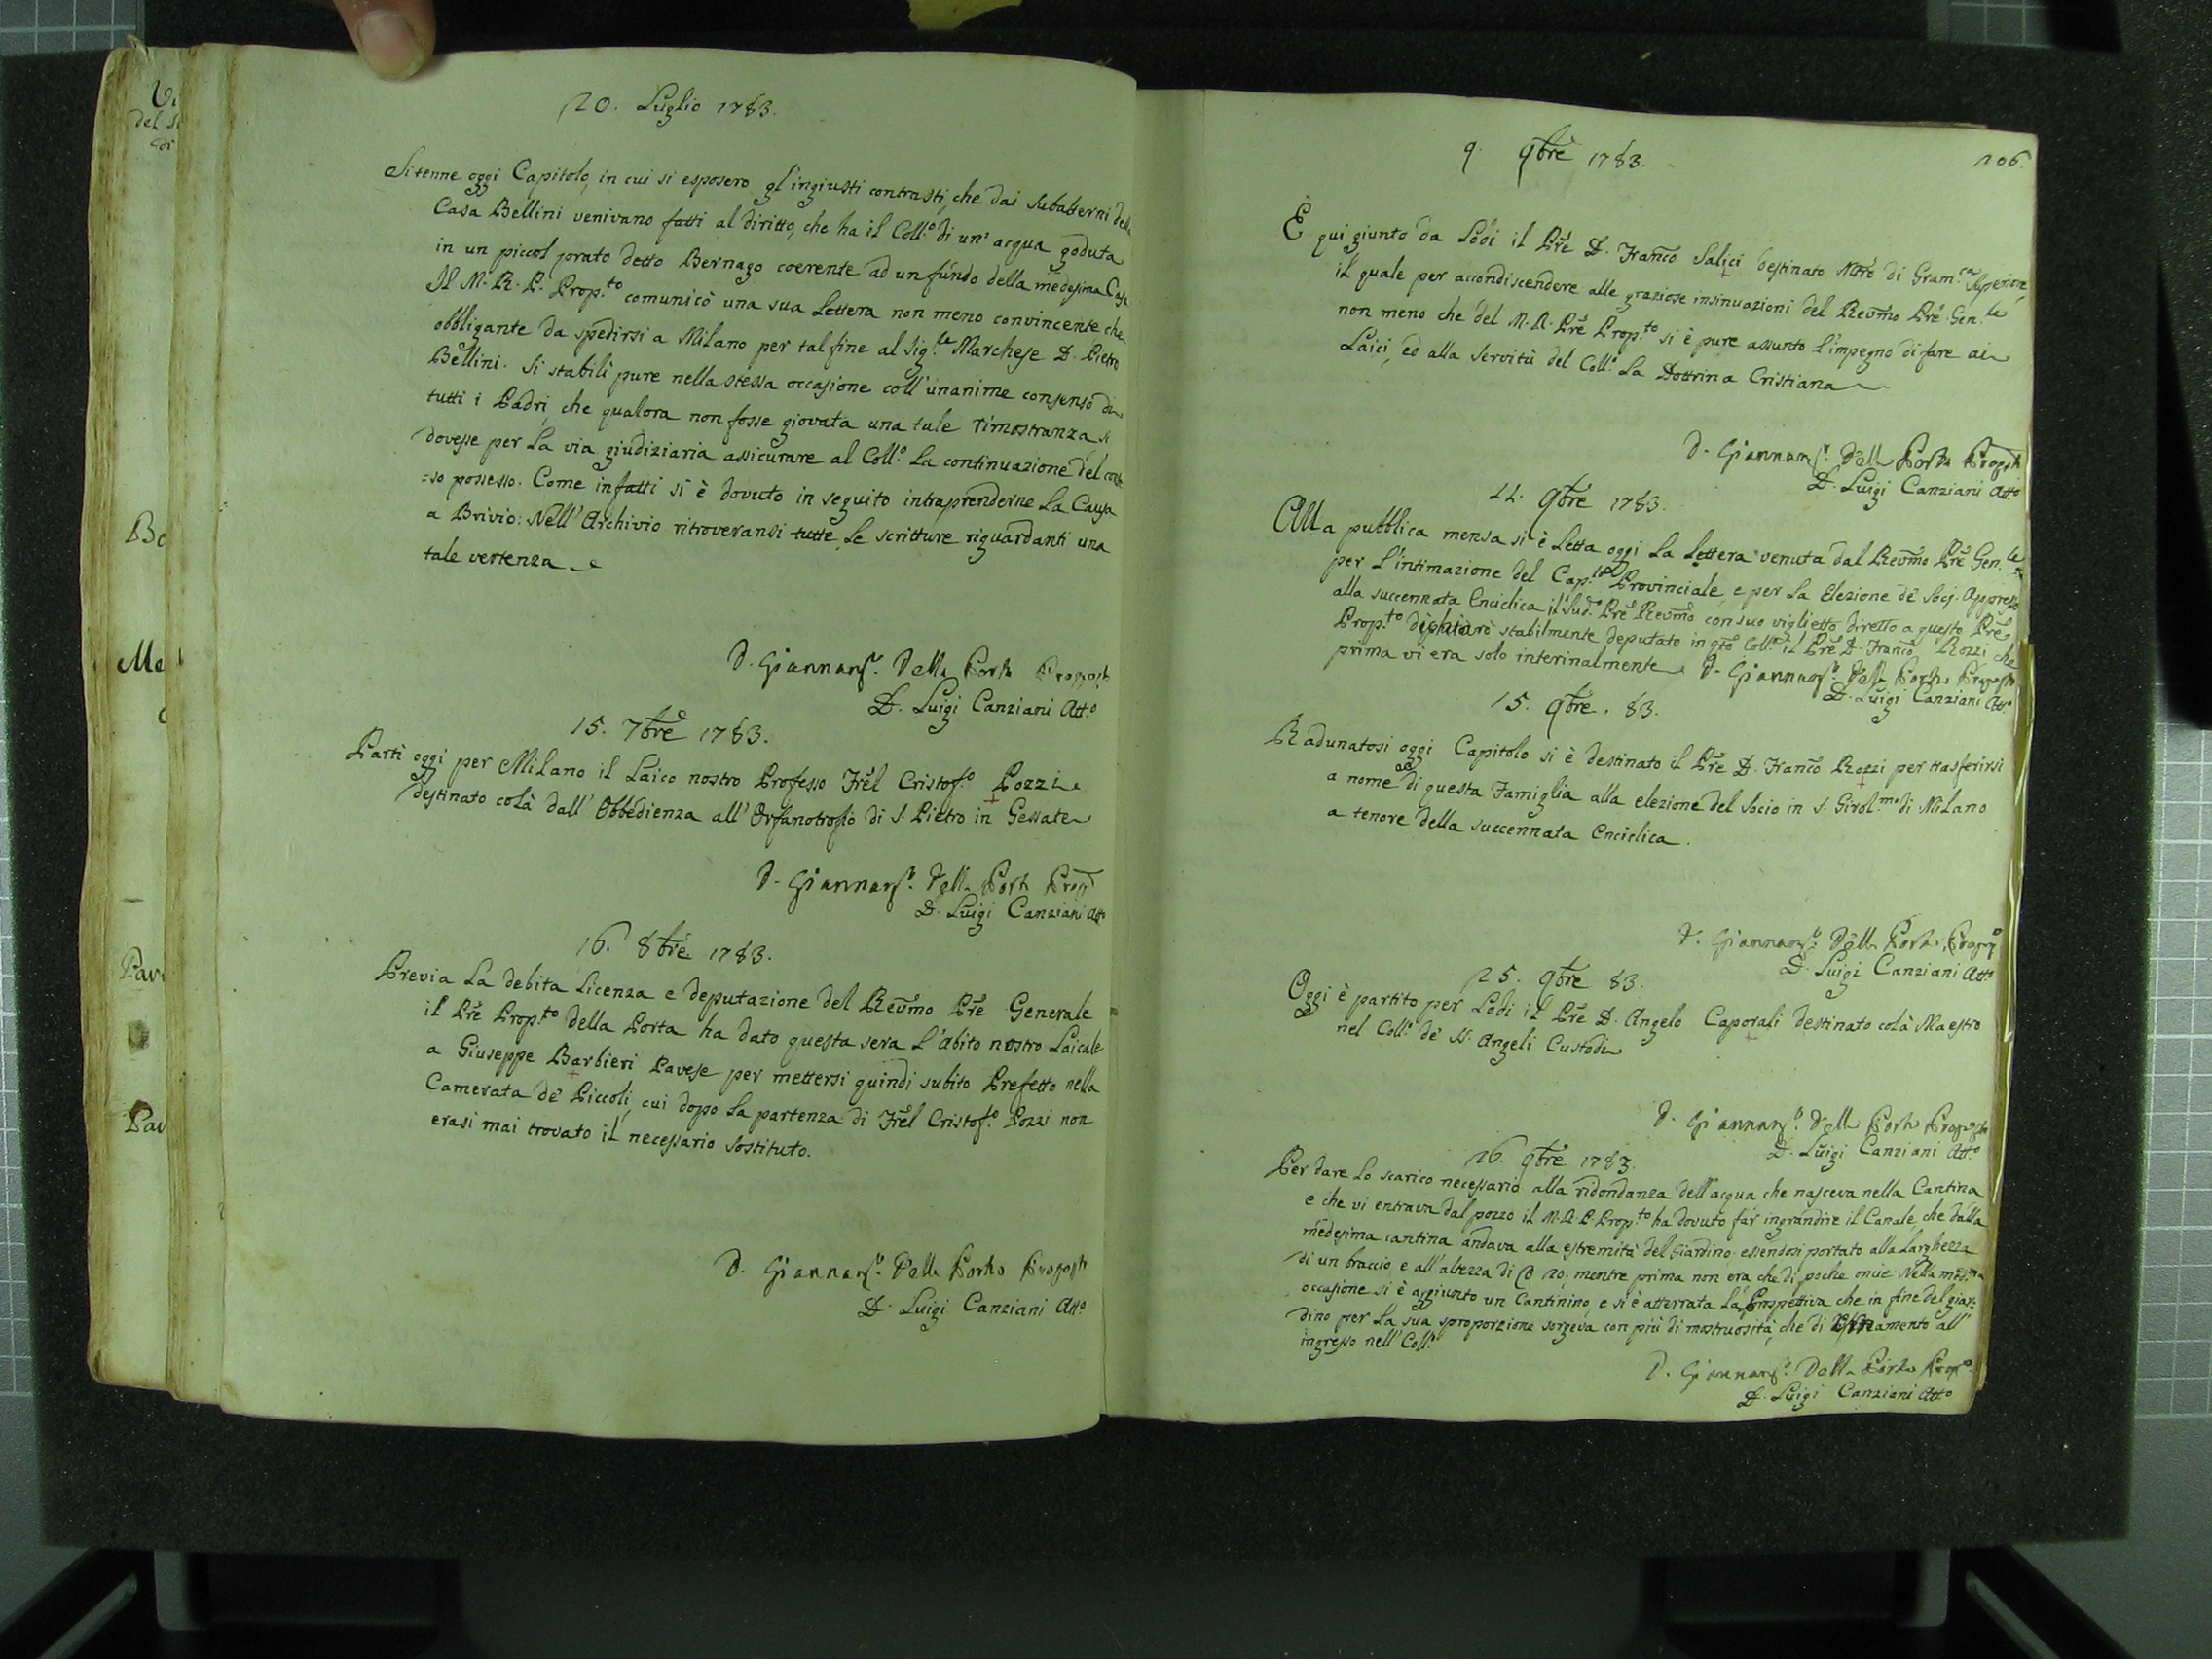 20. Luglio 1783.
Si tenne oggi Capitolo, in cui si esposero gl'ingiusti contrasti, che dai Subalterni della
Casa Bellini venivano fatti al diritto, che ha il Coll.º di un' acqua goduta
in un piccol prato detto Bernago coerente ad un fundo della medesima Casa
Il M. R. P. Prop.to comunicò una sua Lettera non meno convincente che
obbligante da spedirsi a Milano per tal fine al Sig.re Marchese D. Pietro
Bellini. Si stabilì pure nella stessa occasione coll'unanime consenso di
tutti i Padri, che qualora non fosse giovata una tale rimostranza si
dovesse per la via giudiziaria assicurare al Coll.º la continuazione del
-so possesso. Come infatti si è dovuto in seguito intraprenderne la Causa
a Brivio: Nell' Archivio ritroveransi tutte le scritture riguardanti una
tale vertenza
D. Giannanº. Della Porta Propost
D. Luigi Canziani Att.º
15. 7bre 1783.
Partì oggi per Milano il Laico nostro Professo Frẽl Cristof.º Pozzi
destinato colà dall' Obbedienza all' Orfanotrofio di S. Pietro in Gessate
D. Giannanº. Della Porta Prop
D. Luigi Canziani Atto
16. 8bre 1783.
Previa la debita licenza e deputazione del Reṽmo Prẽ Generale
il Prẽ Prop.to della Porta ha dato questa sera l'abito nostro Laicale
a Giuseppe Barbieri Pavese per mettersi quindi subito Prefetto nella
Camerata de' Piccoli, cui dopo la partenza di Frẽl Cristof.º Pozzi non
erasi mai trovato il necessario sostituto.
D. Giannanº. Della Porta Propost
D. Luigi Canziani Att.º
106.
9. 9bre 1783.
È qui giunto da Lodi il Prẽ D. Franc̃o Salici destinato Mrõ di Gram.ca Superiore,
il quale per accondiscendere alle graziose insinuazioni del Reṽmo Prẽ Gen.le
non meno che del M. R. Prẽ Prop.to si è pure assunto l'impegno di fare ai
Laici, ed alla servitù del Coll.º la Dottrina Cristiana
D. Giannanº. Della Porta Propost
D. Luigi Canziani Atto
11. 9bre 1783.
Alla pubblica mensa si è letta oggi la lettera venuta dal Reṽmo Prẽ Gen.le
per l'intimazione del Cap.lo Provinciale, e per la Elezione de' Socj. Appresso
alla succennata Enciclica il Sud.º Prẽ Reṽmo con suo viglietto diretto a questo Prẽ
Prop.to dichiarò stabilmente deputato in qtõ Coll.º il Prẽ D. Franc̃o Rozzi che
prima vi era solo interinalmente D. Giannanº. Della Porta Proposto
D. Luigi Canziani Att.º
15. 9bre. 83.
Radunatosi oggi Capitolo si è destinato il Prẽ D. Franc̃o Rozzi per trasferirsi
a nome di questa Famiglia alla elezione del Socio in S. Girol.mo di Milano
a tenore della succennata Enciclica.
D. Giannanº. Della Porta Propº
D. Luigi Canziani Atto
25. 9bre 83.
Oggi è partito per Lodi il Prẽ D. Angelo Caporali destinato colà Maestro
nel Coll.º de' SS. Angeli Custodi
D. Giannanº. Della Porta Proposto
D. Luigi Canziani Att.º
26. 9bre 1783.
Per dare lo scarico necessario alla ridondanza dell'acqua che nasceva nella Cantina
e che vi entrava dal pozzo il M. R. P. Prop.to ha dovuto far ingrandire il Canale, che dalla
medesima cantina andava alla estremità del Giardino; essendosi portato alla larghezza
di un braccio e all'altezza di 20. mentre prima non era che di poche oncie. Nella med.ma
occasione si è aggiunto un Cantinino, e si è atterrata la Prospettiva che in fine del giar=
dino per la sua sproporzione sorgeva con più di mostruosità, che di ornamento all'
ingresso nell' Coll.º
D. Giannanº. Della Porta Propº
D. Luigi Canziani Atto